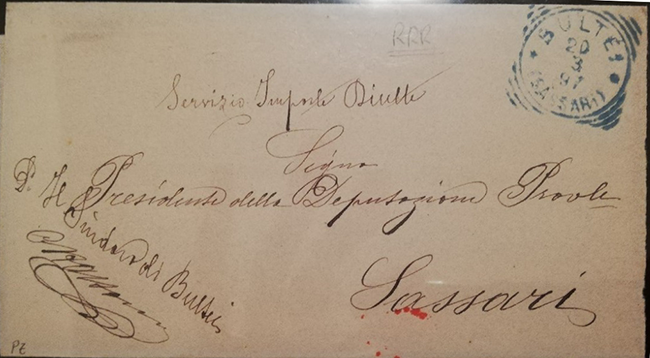 RRR
BULTEI
20
3
97
(SASSARI)
Servizio Imposte Dirette
Signor
Presidente della Deputazione Provle
Sassari
Ds Il Sindaco di Bultei
PZ